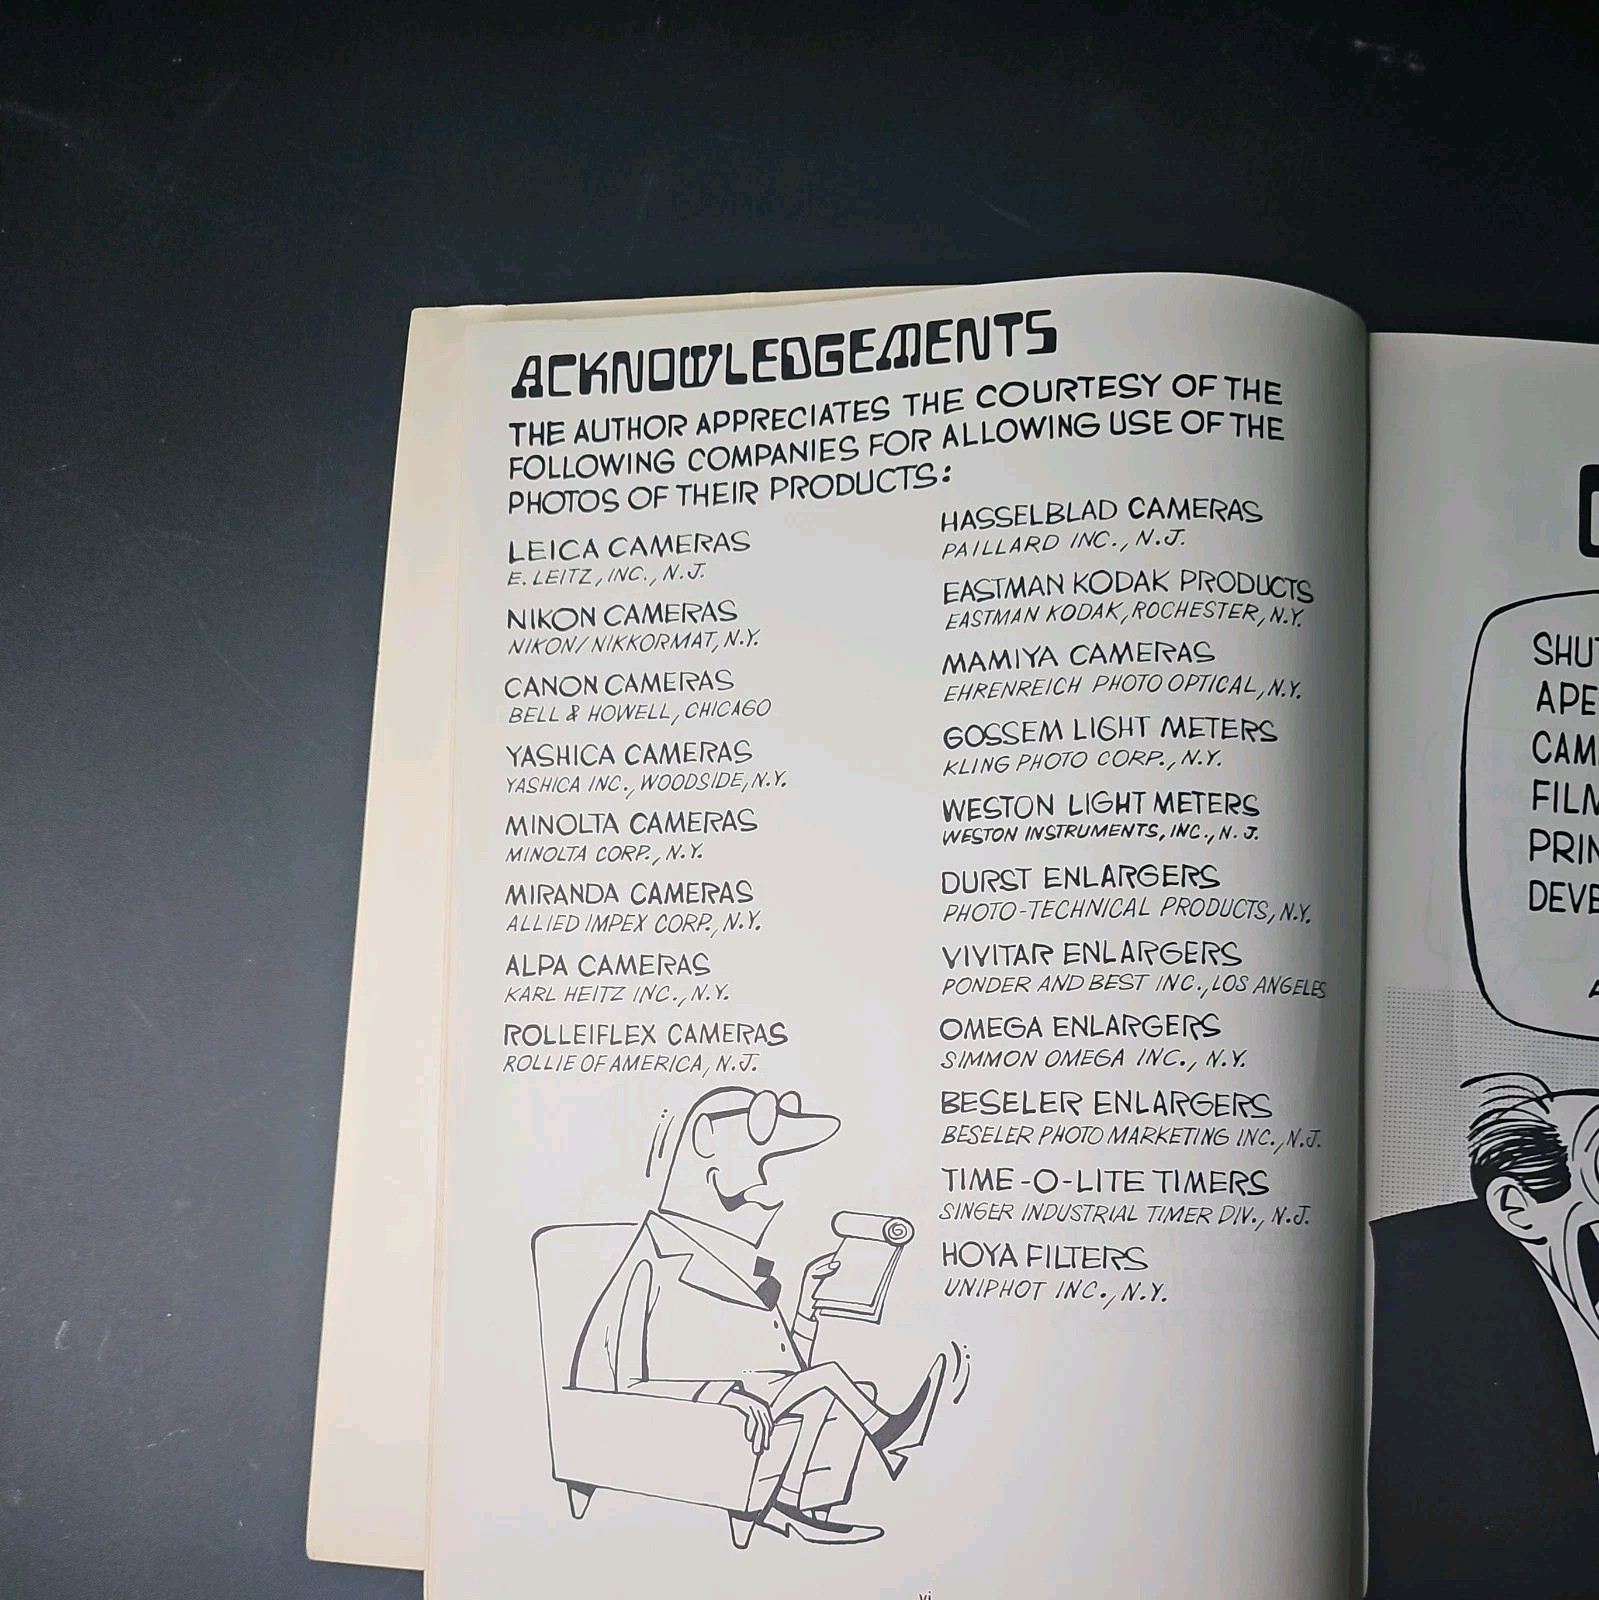 ACKNOWLEDGEMENTS
THE AUTHOR APPRECIATES THE COURTESY OF THE
FOLLOWING COMPANIES FOR ALLOWING USE OF THE
PHOTOS OF THEIR PRODUCTS:
LEICA CAMERAS
E. LEITZ, INC., N.J.
NIKON CAMERAS
NIKON/NIKKORMAT, N.Y.
CANON CAMERAS
BELL & HOWELL, CHICAGO
YASHICA CAMERAS
YASHICA INC., WOODSIDE, N.Y.
MINOLTA CAMERAS
MINOLTA CORP., N.Y.
MIRANDA CAMERAS
ALLIED IMPEX CORP., N.Y.
ALPA CAMERAS
KARL HEITZ INC., N.Y.
ROLLEIFLEX CAMERAS
ROLLIE OF AMERICA, N.J.
HASSELBLAD CAMERAS
PAILLARD INC., N.J.
EASTMAN KODAK PRODUCTS
EASTMAN KODAK, ROCHESTER, N.Y.
MAMIYA CAMERAS
EHRENREICH PHOTO OPTICAL, N.Y.
GOSSEM LIGHT METERS
KLING PHOTO CORP., N.Y.
WESTON LIGHT METERS
WESTON INSTRUMENTS, INC., N.J.
DURST ENLARGERS
PHOTO-TECHNICAL PRODUCTS, N.Y.
VIVITAR ENLARGERS
PONDER AND BEST INC., LOS ANGELES
OMEGA ENLARGERS
SIMMON OMEGA INC., N.Y.
BESELER ENLARGERS
BESELER PHOTO MARKETING INC., N.J.
TIME-O-LITE TIMERS
SINGER INDUSTRIAL TIMER DIV., N.J.
HOYA FILTERS
UNIPHOT INC., N.Y.
vi
SHUT
APE
CAM
FILM
PRIN
DEVE